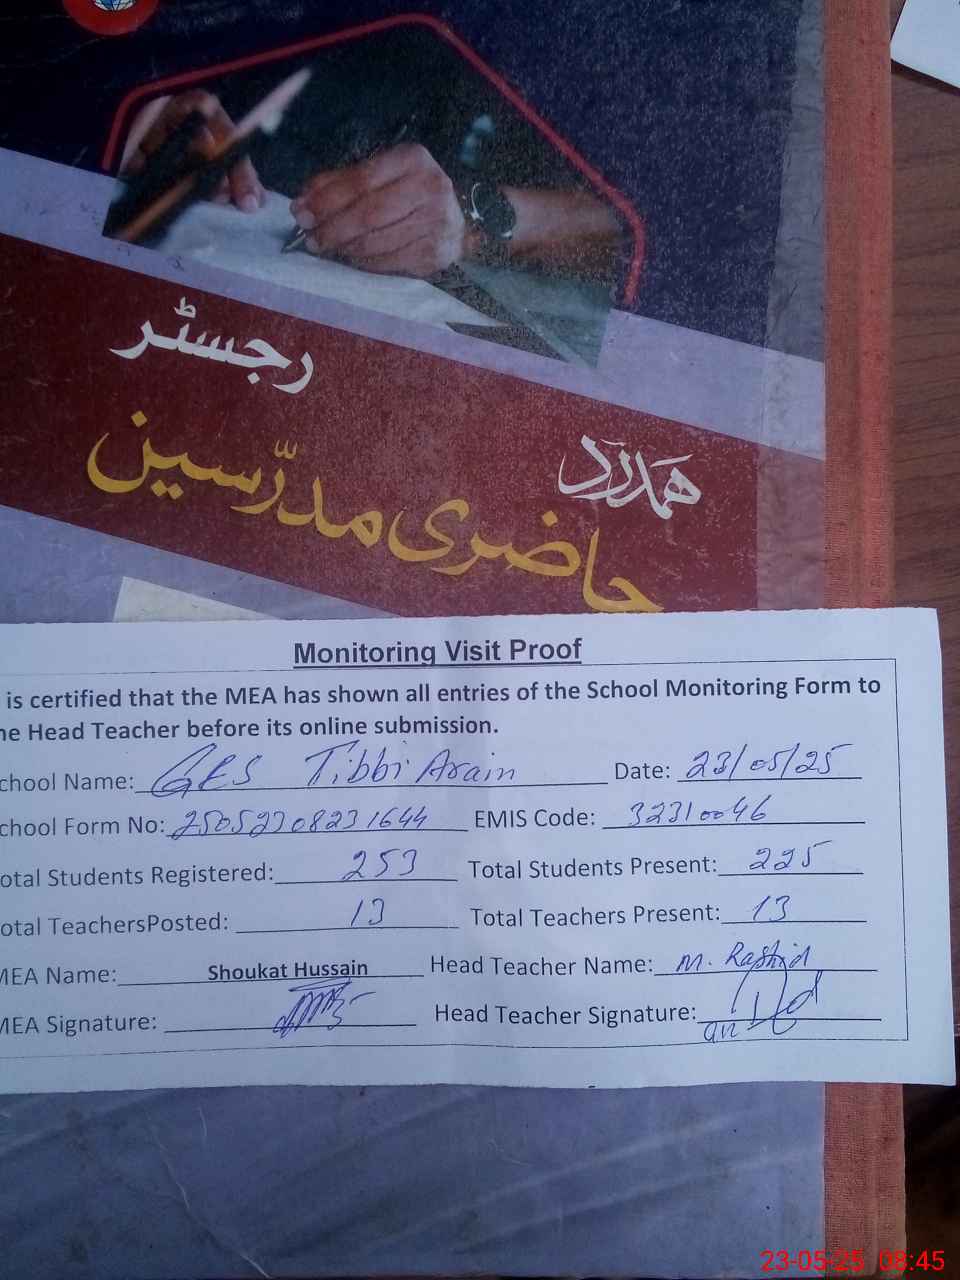 رجسٹر
ہمدرد
حاضری مدرّسین
Monitoring Visit Proof
is certified that the MEA has shown all entries of the School Monitoring Form to
he Head Teacher before its online submission.
chool Name: GES Tibbi Arain Date: 23/05/25
chool Form No: 25052308231644 EMIS Code: 32310046
otal Students Registered: 253 Total Students Present: 225
otal TeachersPosted: 13 Total Teachers Present: 13
MEA Name: Shoukat Hussain Head Teacher Name: M. Rashid
MEA Signature: Head Teacher Signature:
23-05-25 08:45